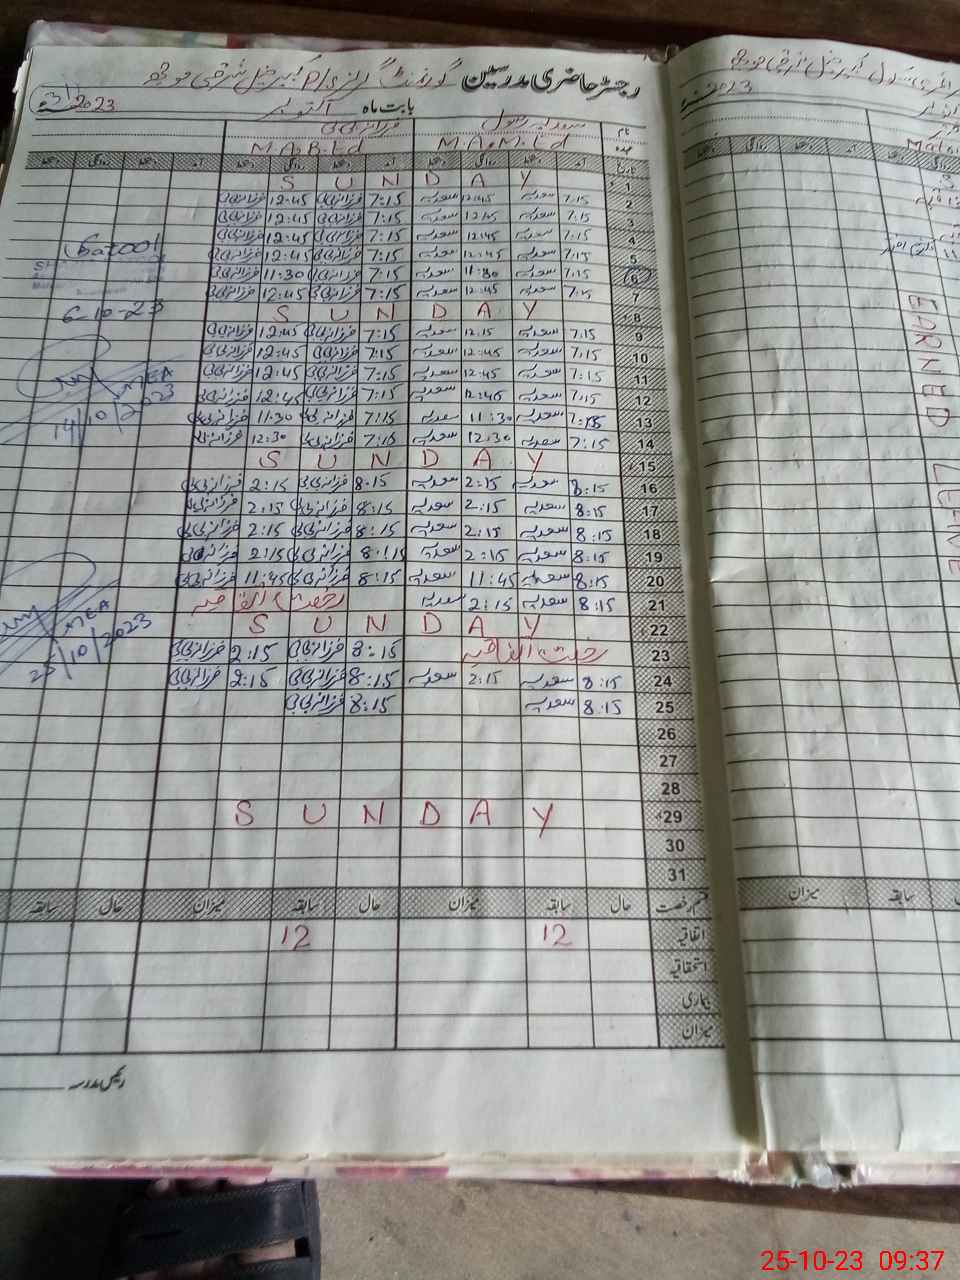 رجسٹر حاضری مدرسین گورنمنٹ
بابت ماہ اکتوبر 2023
نام سعدیہ بتول فرزانہ بی بی
عہدہ M.A.M.Ed M.A.B.Ed
تاریخ آمد دستخط روانگی دستخط آمد دستخط روانگی دستخط آمد دستخط روانگی دستخط
1 S U N D A Y
2 7:15 سعدیہ 12:45 سعدیہ 7:15 فرزانہ بی بی 12:45 فرزانہ بی بی
3 7:15 سعدیہ 12:45 سعدیہ 7:15 فرزانہ بی بی 12:45 فرزانہ بی بی
4 7:15 سعدیہ 12:45 سعدیہ 7:15 فرزانہ بی بی 12:45 فرزانہ بی بی
5 7:15 سعدیہ 12:45 سعدیہ 7:15 فرزانہ بی بی 12:45 فرزانہ بی بی
6 7:15 سعدیہ 11:30 سعدیہ 7:15 فرزانہ بی بی 11:30 فرزانہ بی بی
7 7:15 سعدیہ 12:45 سعدیہ 7:15 فرزانہ بی بی 12:45 فرزانہ بی بی
8 S U N D A Y
9 7:15 سعدیہ 12:15 سعدیہ 7:15 فرزانہ بی بی 12:45 فرزانہ بی بی
10 7:15 سعدیہ 12:45 سعدیہ 7:15 فرزانہ بی بی 12:45 فرزانہ بی بی
11 7:15 سعدیہ 12:45 سعدیہ 7:15 فرزانہ بی بی 12:45 فرزانہ بی بی
12 7:15 سعدیہ 12:45 سعدیہ 7:15 فرزانہ بی بی 12:45 فرزانہ بی بی
13 7:15 سعدیہ 11:30 سعدیہ 7:15 فرزانہ بی بی 11:30 فرزانہ بی بی
14 7:15 سعدیہ 12:30 سعدیہ 7:15 فرزانہ بی بی 12:30 فرزانہ بی بی
15 S U N D A Y
16 8:15 سعدیہ 2:15 سعدیہ 8:15 فرزانہ بی بی 2:15 فرزانہ بی بی
17 8:15 سعدیہ 2:15 سعدیہ 8:15 فرزانہ بی بی 2:15 فرزانہ بی بی
18 8:15 سعدیہ 2:15 سعدیہ 8:15 فرزانہ بی بی 2:15 فرزانہ بی بی
19 8:15 سعدیہ 2:15 سعدیہ 8:15 فرزانہ بی بی 2:15 فرزانہ بی بی
20 8:15 سعدیہ 11:45 سعدیہ 8:15 فرزانہ بی بی 11:45 فرزانہ بی بی
21 8:15 سعدیہ 2:15 سعدیہ رخصت اتفاقیہ
22 S U N D A Y
23 رخصت اتفاقیہ 8:15 فرزانہ بی بی 2:15 فرزانہ بی بی
24 8:15 سعدیہ 2:15 سعدیہ 8:15 فرزانہ بی بی 2:15 فرزانہ بی بی
25 8:15 سعدیہ 8:15 فرزانہ بی بی
26
27
28
29 S U N D A Y
30
31
قسم رخصت حال سابقہ میزان حال سابقہ میزان حال سابقہ
اتفاقیہ 12 12
استحقاقیہ
بیماری
میزان
رئیس مدرسہ
Batool
6-10-23
MEA
14/10/2023
MEA
25/10/2023
2023
EARNED LEAVE
میزان سابقہ
25-10-23 09:37